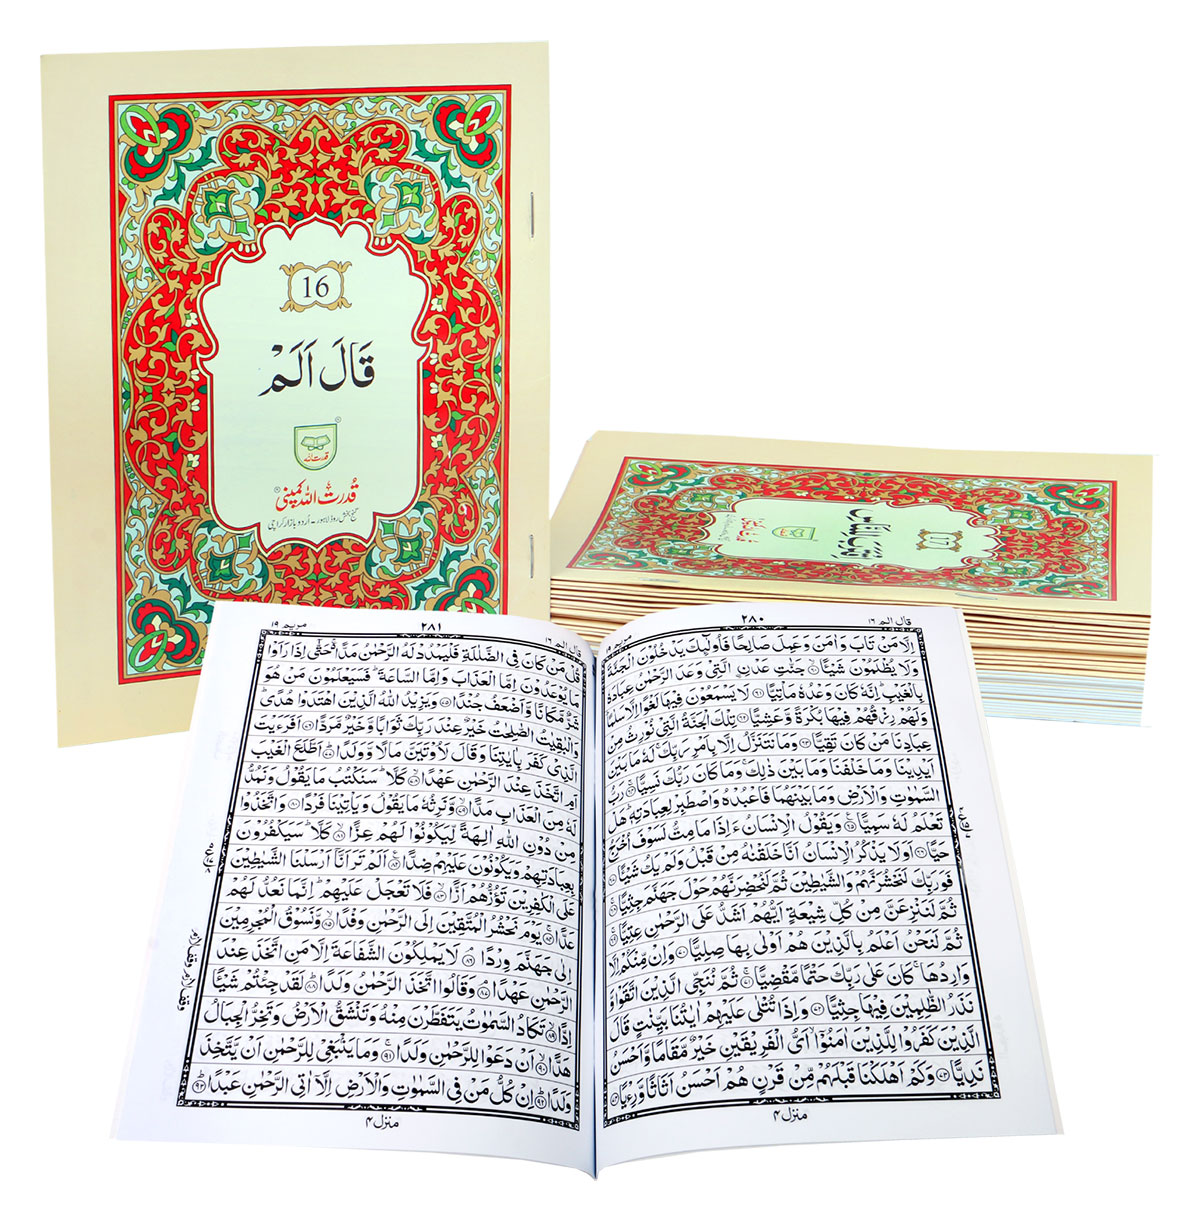 16
قَالَ اَلَمْ
قدرت اللہ
قُدرت اللہ کمپنی
گنج بخش روڈ لاہور - اُردو بازار کراچی
قال الم ۱۶
۲۸۰
اِلَّا مَنْ تَابَ وَاٰمَنَ وَعَمِلَ صَالِحًا فَاُولٰٓئِكَ يَدْخُلُوْنَ الْجَنَّةَ
وَلَا يُظْلَمُوْنَ شَيْئًا ۙ۶۰ جَنّٰتِ عَدْنِ ࣙالَّتِيْ وَعَدَ الرَّحْمٰنُ عِبَادَهٗ
بِالْغَيْبِ ؕ اِنَّهٗ كَانَ وَعْدُهٗ مَاْتِيًّا ۶۱ لَا يَسْمَعُوْنَ فِيْهَا لَغْوًا اِلَّا سَلٰمًا ؕ
وَلَهُمْ رِزْقُهُمْ فِيْهَا بُكْرَةً وَّعَشِيًّا ۶۲ تِلْكَ الْجَنَّةُ الَّتِيْ نُوْرِثُ مِنْ
عِبَادِنَا مَنْ كَانَ تَقِيًّا ۶۳ وَمَا نَتَنَزَّلُ اِلَّا بِاَمْرِ رَبِّكَ ۚ لَهٗ مَا بَيْنَ
اَيْدِيْنَا وَمَا خَلْفَنَا وَمَا بَيْنَ ذٰلِكَ ۚ وَمَا كَانَ رَبُّكَ نَسِيًّا ۚ۶۴ رَبُّ
السَّمٰوٰتِ وَالْاَرْضِ وَمَا بَيْنَهُمَا فَاعْبُدْهُ وَاصْطَبِرْ لِعِبَادَتِهٖ ؕ هَلْ
تَعْلَمُ لَهٗ سَمِيًّا ۶۵ وَيَقُوْلُ الْاِنْسَانُ ءَاِذَا مَا مِتُّ لَسَوْفَ اُخْرَجُ
حَيًّا ۶۶ اَوَلَا يَذْكُرُ الْاِنْسَانُ اَنَّا خَلَقْنٰهُ مِنْ قَبْلُ وَلَمْ يَكُ شَيْئًا ۶۷
فَوَرَبِّكَ لَنَحْشُرَنَّهُمْ وَالشَّيٰطِيْنَ ثُمَّ لَنُحْضِرَنَّهُمْ حَوْلَ جَهَنَّمَ جِثِيًّا ۚ۶۸
ثُمَّ لَنَنْزِعَنَّ مِنْ كُلِّ شِيْعَةٍ اَيُّهُمْ اَشَدُّ عَلَى الرَّحْمٰنِ عِتِيًّا ۚ۶۹
ثُمَّ لَنَحْنُ اَعْلَمُ بِالَّذِيْنَ هُمْ اَوْلٰى بِهَا صِلِيًّا ۷۰ وَاِنْ مِّنْكُمْ اِلَّا
وَارِدُهَا ۚ كَانَ عَلٰى رَبِّكَ حَتْمًا مَّقْضِيًّا ۚ۷۱ ثُمَّ نُنَجِّي الَّذِيْنَ اتَّقَوْا وَّ
نَذَرُ الظّٰلِمِيْنَ فِيْهَا جِثِيًّا ۷۲ وَاِذَا تُتْلٰى عَلَيْهِمْ اٰيٰتُنَا بَيِّنٰتٍ قَالَ
الَّذِيْنَ كَفَرُوْا لِلَّذِيْنَ اٰمَنُوْٓا ۙ اَيُّ الْفَرِيْقَيْنِ خَيْرٌ مَّقَامًا وَّاَحْسَنُ
نَدِيًّا ۷۳ وَكَمْ اَهْلَكْنَا قَبْلَهُمْ مِّنْ قَرْنٍ هُمْ اَحْسَنُ اَثَاثًا وَّرِءْيًا ۷۴
منزل ۴
قال الم ۱۶
۲۸۱
مریم ۱۹
قُلْ مَنْ كَانَ فِي الضَّلٰلَةِ فَلْيَمْدُدْ لَهُ الرَّحْمٰنُ مَدًّا ۚ حَتّٰٓى اِذَا رَاَوْا
مَا يُوْعَدُوْنَ اِمَّا الْعَذَابَ وَاِمَّا السَّاعَةَ ؕ فَسَيَعْلَمُوْنَ مَنْ هُوَ
شَرٌّ مَّكَانًا وَّاَضْعَفُ جُنْدًا ۷۵ وَيَزِيْدُ اللّٰهُ الَّذِيْنَ اهْتَدَوْا هُدًى ؕ
وَالْبٰقِيٰتُ الصّٰلِحٰتُ خَيْرٌ عِنْدَ رَبِّكَ ثَوَابًا وَّخَيْرٌ مَّرَدًّا ۷۶ اَفَرَءَيْتَ
الَّذِيْ كَفَرَ بِاٰيٰتِنَا وَقَالَ لَاُوْتَيَنَّ مَالًا وَّوَلَدًا ؕ۷۷ اَطَّلَعَ الْغَيْبَ
اَمِ اتَّخَذَ عِنْدَ الرَّحْمٰنِ عَهْدًا ۙ۷۸ كَلَّا ؕ سَنَكْتُبُ مَا يَقُوْلُ وَنَمُدُّ
لَهٗ مِنَ الْعَذَابِ مَدًّا ۙ۷۹ وَّنَرِثُهٗ مَا يَقُوْلُ وَيَاْتِيْنَا فَرْدًا ۸۰ وَاتَّخَذُوْا
مِنْ دُوْنِ اللّٰهِ اٰلِهَةً لِّيَكُوْنُوْا لَهُمْ عِزًّا ۙ۸۱ كَلَّا ؕ سَيَكْفُرُوْنَ
بِعِبَادَتِهِمْ وَيَكُوْنُوْنَ عَلَيْهِمْ ضِدًّا ۸۲ اَلَمْ تَرَ اَنَّآ اَرْسَلْنَا الشَّيٰطِيْنَ
عَلَى الْكٰفِرِيْنَ تَؤُزُّهُمْ اَزًّا ۙ۸۳ فَلَا تَعْجَلْ عَلَيْهِمْ ؕ اِنَّمَا نَعُدُّ لَهُمْ
عَدًّا ۚ۸۴ يَوْمَ نَحْشُرُ الْمُتَّقِيْنَ اِلَى الرَّحْمٰنِ وَفْدًا ۙ۸۵ وَّنَسُوْقُ الْمُجْرِمِيْنَ
اِلٰى جَهَنَّمَ وِرْدًا ۘ۸۶ لَا يَمْلِكُوْنَ الشَّفَاعَةَ اِلَّا مَنِ اتَّخَذَ عِنْدَ
الرَّحْمٰنِ عَهْدًا ۘ۸۷ وَقَالُوا اتَّخَذَ الرَّحْمٰنُ وَلَدًا ؕ۸۸ لَقَدْ جِئْتُمْ شَيْئًا
اِدًّا ۙ۸۹ تَكَادُ السَّمٰوٰتُ يَتَفَطَّرْنَ مِنْهُ وَتَنْشَقُّ الْاَرْضُ وَتَخِرُّ الْجِبَالُ
هَدًّا ۙ۹۰ اَنْ دَعَوْا لِلرَّحْمٰنِ وَلَدًا ۚ۹۱ وَمَا يَنْۢبَغِيْ لِلرَّحْمٰنِ اَنْ يَّتَّخِذَ
وَلَدًا ؕ۹۲ اِنْ كُلُّ مَنْ فِي السَّمٰوٰتِ وَالْاَرْضِ اِلَّآ اٰتِي الرَّحْمٰنِ عَبْدًا ؕ۹۳
منزل ۴